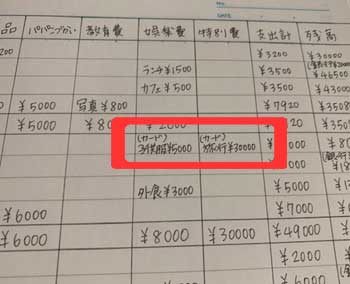 DATE
品 パパこづかい 教育費 娯楽費 特別費 支出計 残高
200 ¥3200 ¥30000
ランチ¥1500 ¥3500 ¥46500
カフェ¥500 ¥3500 ¥43000
¥5000 写真¥800 ¥7920 ¥3508
¥5000 ¥80 ¥2000 920 ¥3508
(カード) (カード)
子供服¥5000 旅行¥30000 ¥80
外食¥3000 ¥5000
¥6000 ¥7000
¥6000 ¥8000 ¥30000 ¥49000
¥2000
¥6000